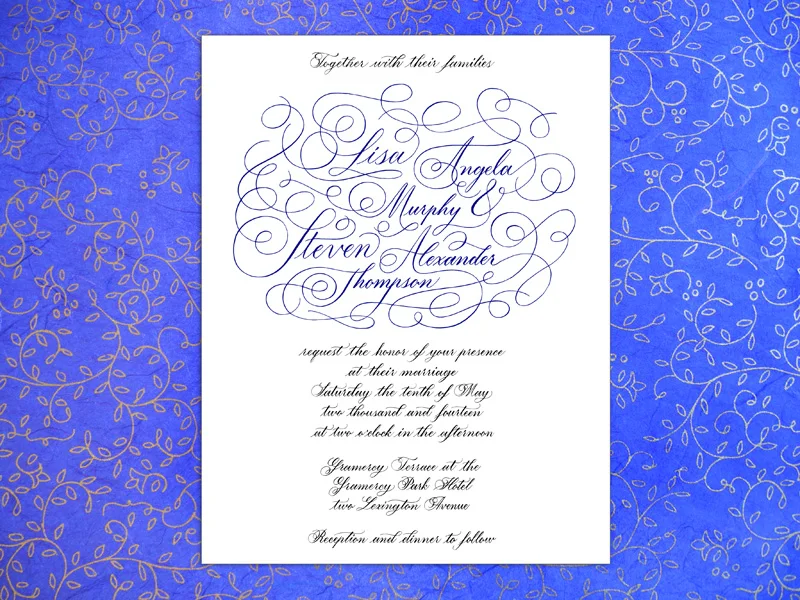 Together with their families
Lisa Angela
Murphy &
Steven Alexander
Thompson
request the honor of your presence
at their marriage
Saturday the tenth of May
two thousand and fourteen
at two o'clock in the afternoon
Gramercy Terrace at the
Gramercy Park Hotel
two Lexington Avenue
Reception and dinner to follow